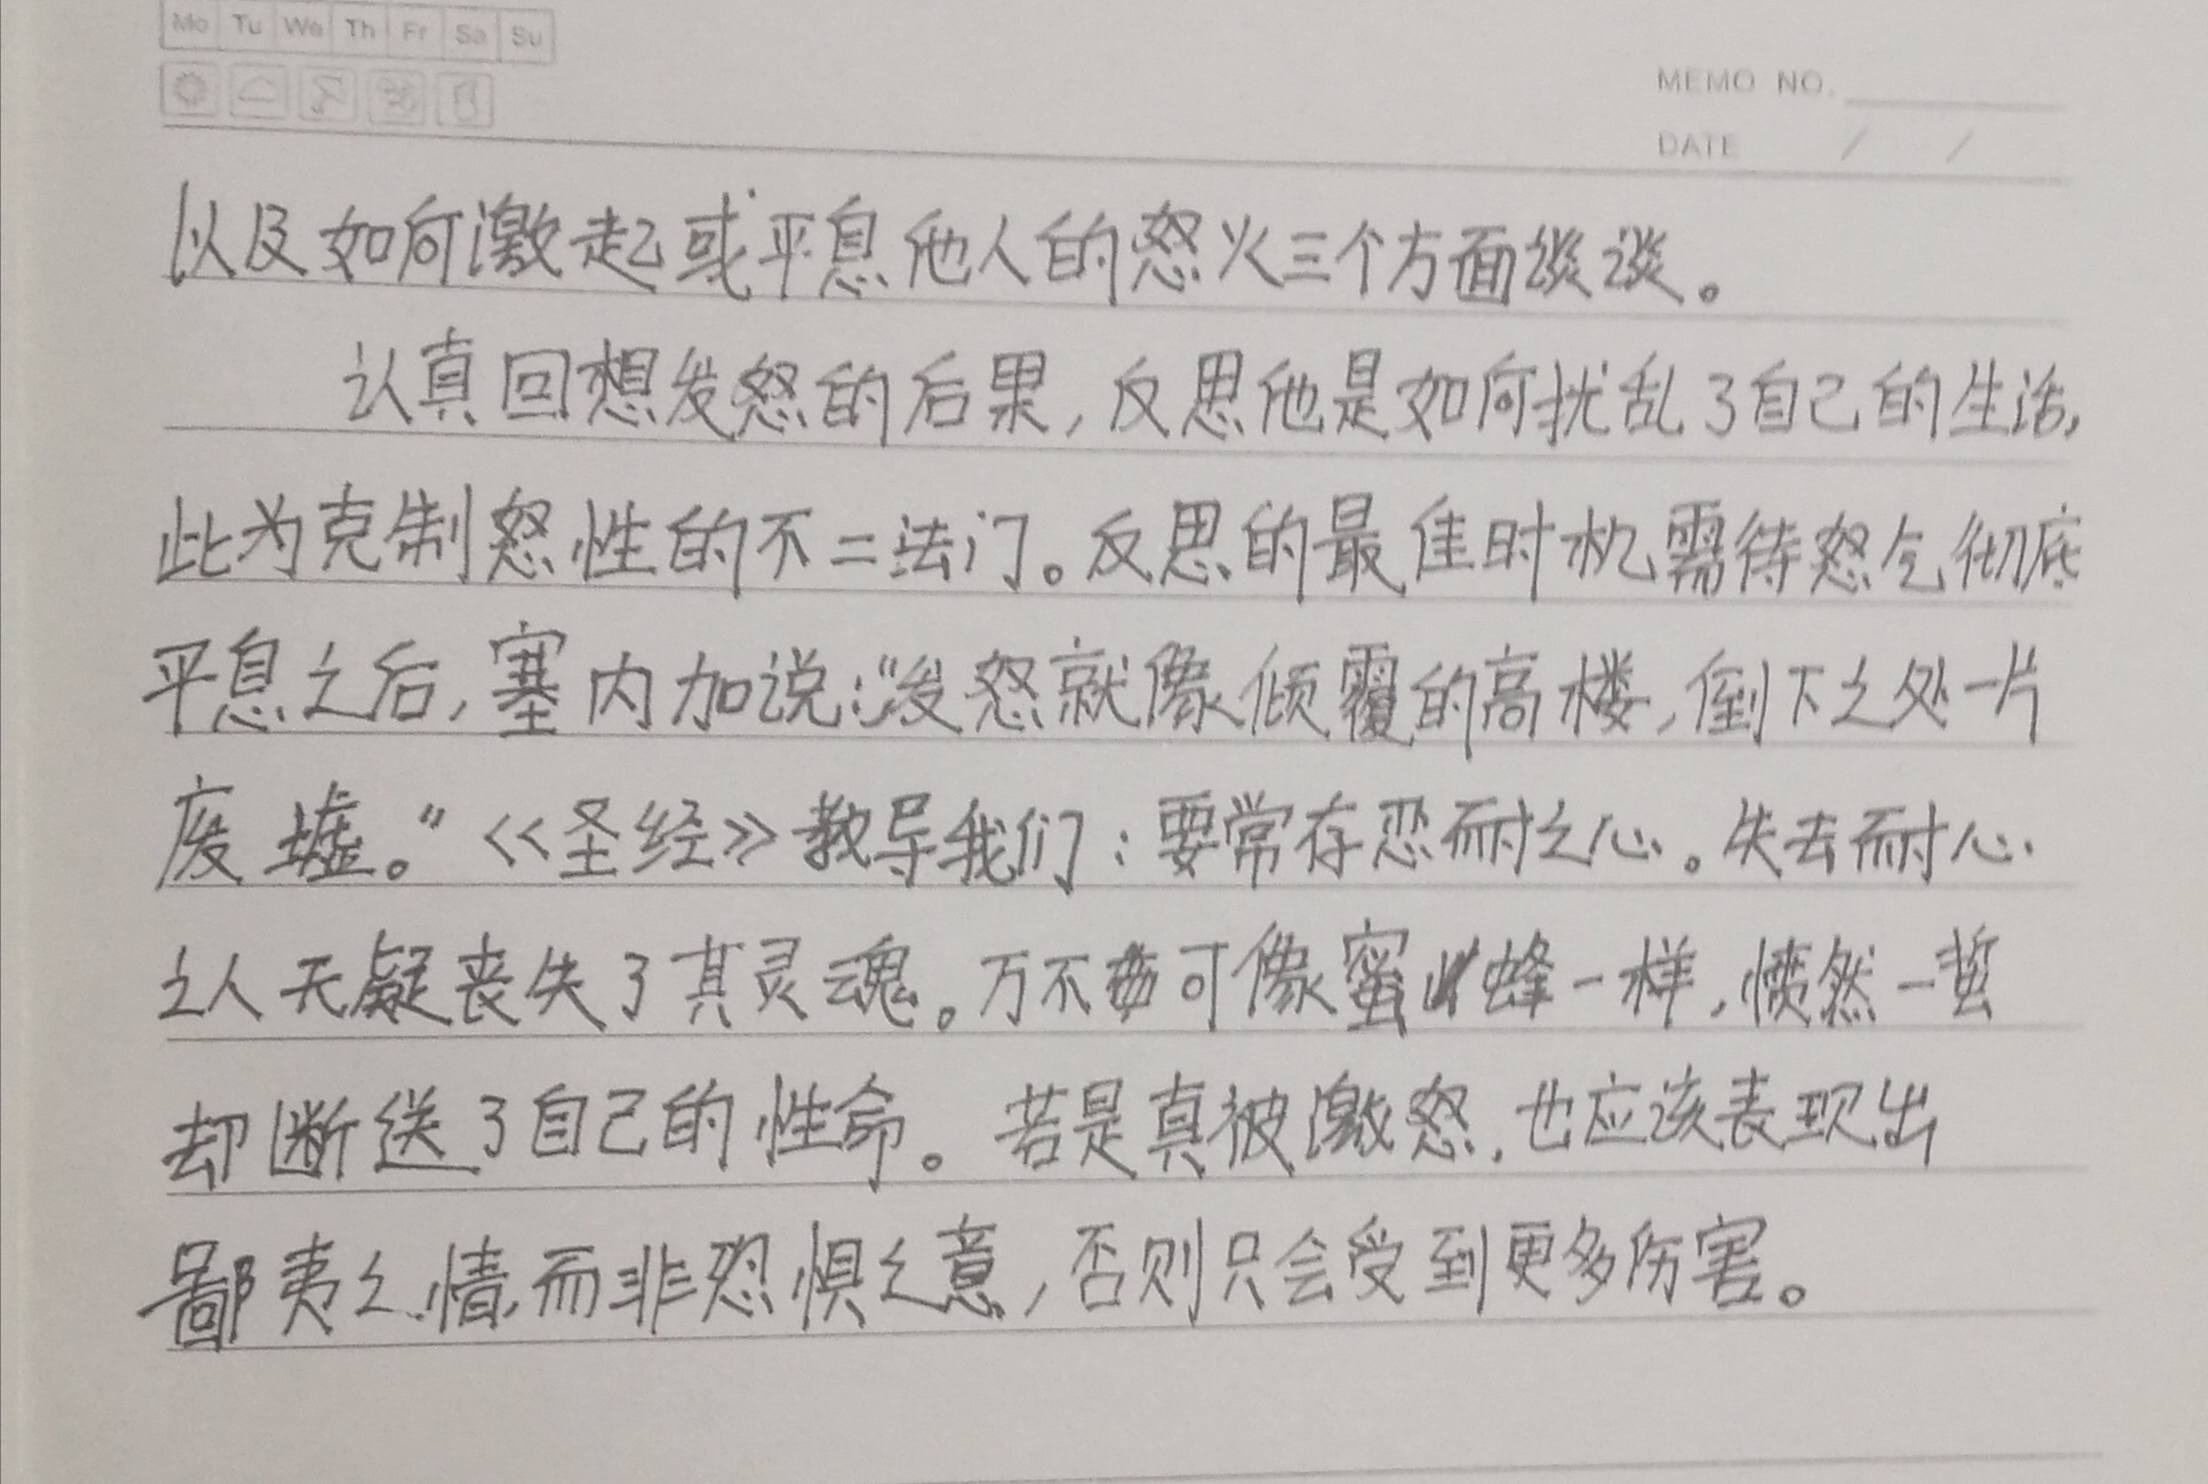 Mo Tu We Th Fr Sa Su
MEMO NO.
DATE / /
以及如何激起或平息他人的怒火三个方面谈谈。
认真回想发怒的后果,反思他是如何扰乱了自己的生活,
此为克制怒性的不二法门。反思的最佳时机需待怒气彻底
平息之后,塞内加说:“发怒就像倾覆的高楼,倒下之处一片
废墟。”《圣经》教导我们:要常存忍耐之心。失去耐心
之人无疑丧失了其灵魂。万不可像蜜蜂一样,愤然一蜇
却断送了自己的性命。若是真被激怒,也应该表现出
鄙夷之情,而非恐惧之意,否则只会受到更多伤害。